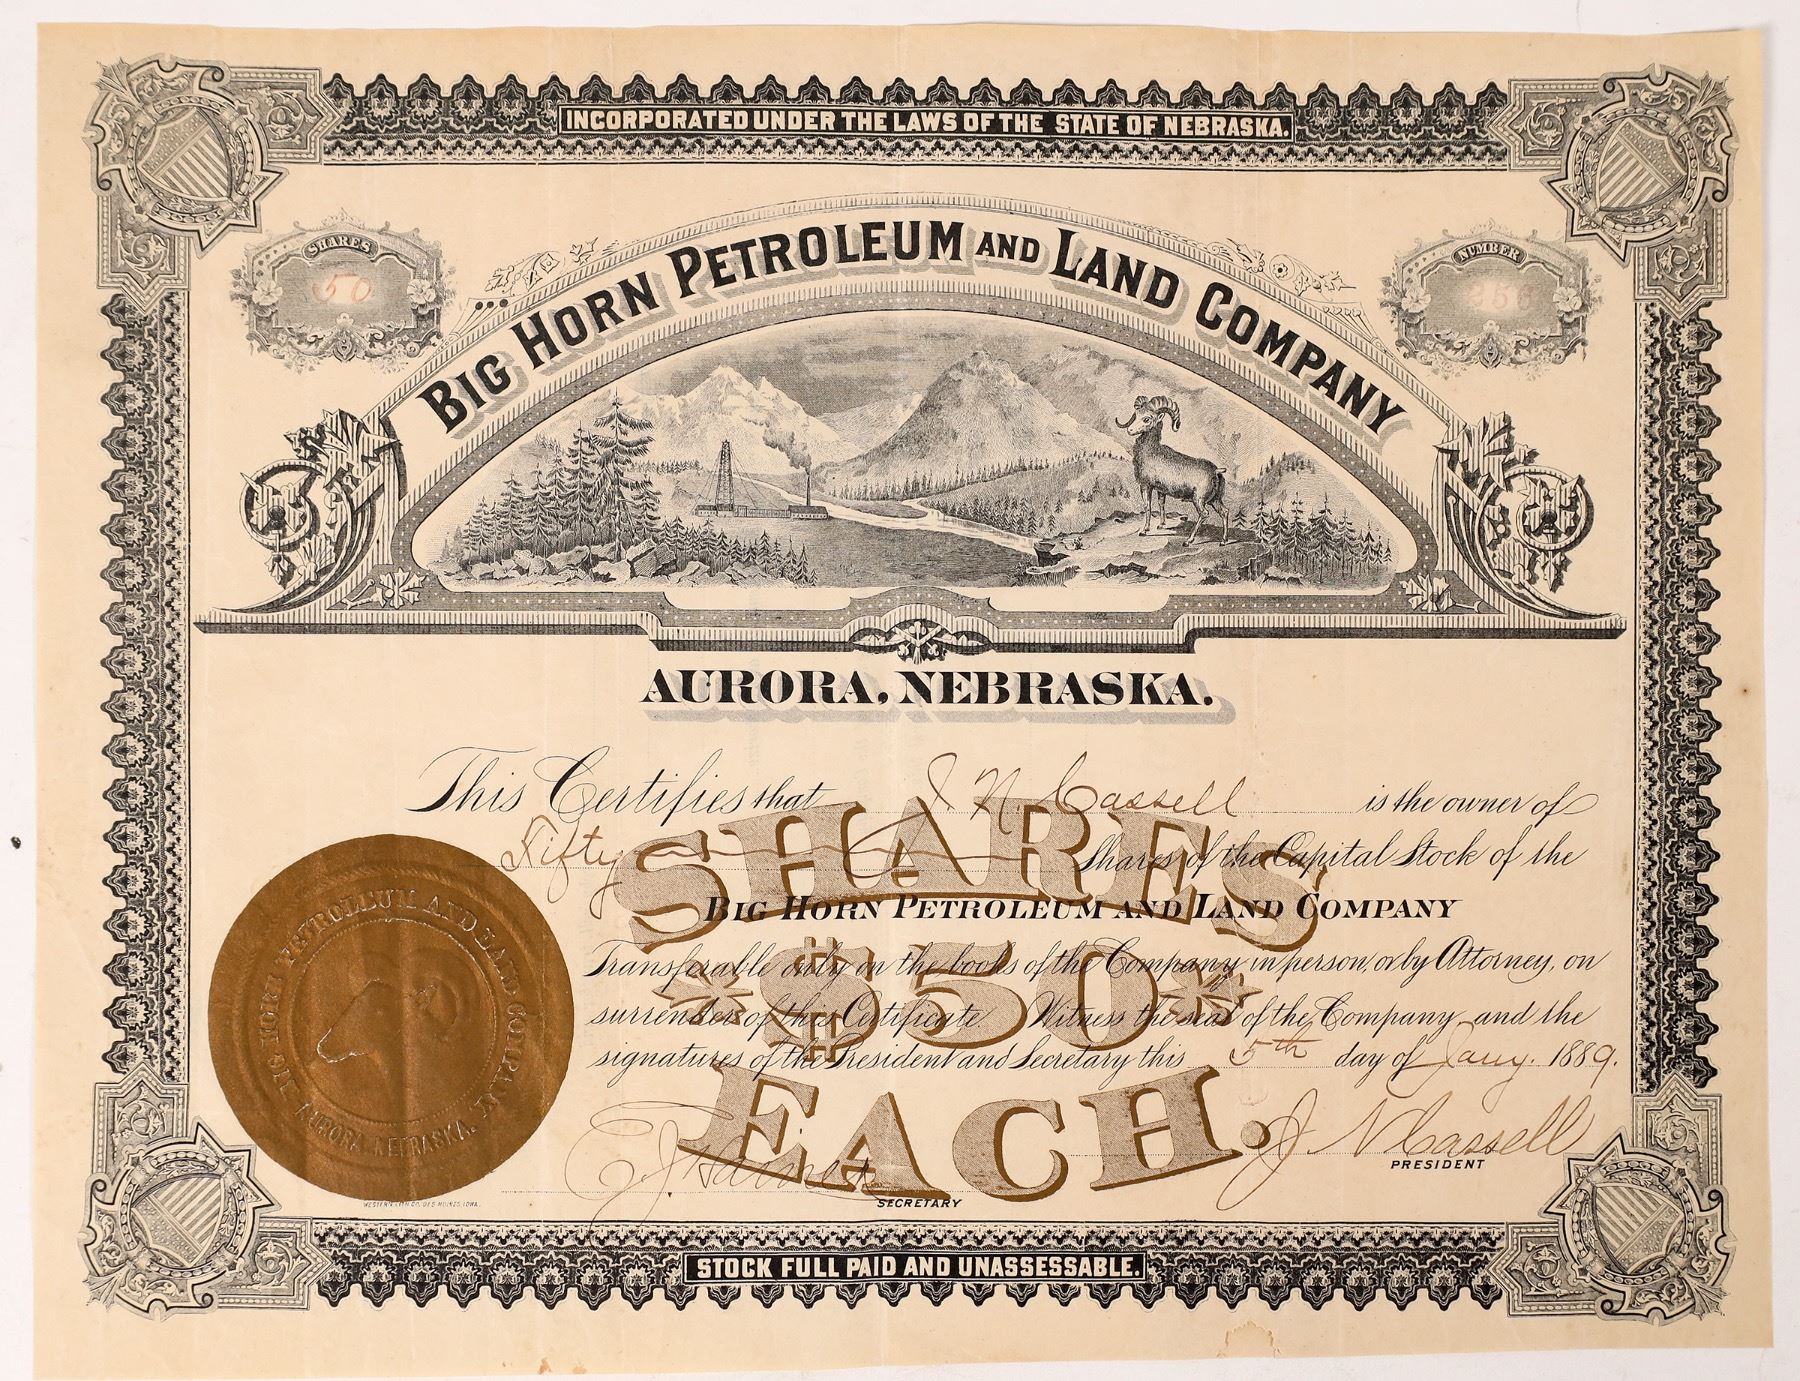 INCORPORATED UNDER THE LAWS OF THE STATE OF NEBRASKA.
SHARES
50
NUMBER
BIG HORN PETROLEUM AND LAND COMPANY
AURORA, NEBRASKA.
This Certifies that J N Cassell is the owner of
Fifty Shares of the Capital Stock of the
BIG HORN PETROLEUM AND LAND COMPANY
Transferable only on the books of the Company in person, or by Attorney, on
surrender of this Certificate Witness the seal of the Company and the
signatures of the President and Secretary this 5th day of Jany. 1889.
SHARES
$50
EACH.
BIG HORN PETROLEUM AND LAND COMPANY
AURORA, NEBRASKA.
J N Cassell
PRESIDENT
SECRETARY
WESTERN LITH. CO. DES MOINES, IOWA.
STOCK FULL PAID AND UNASSESSABLE.